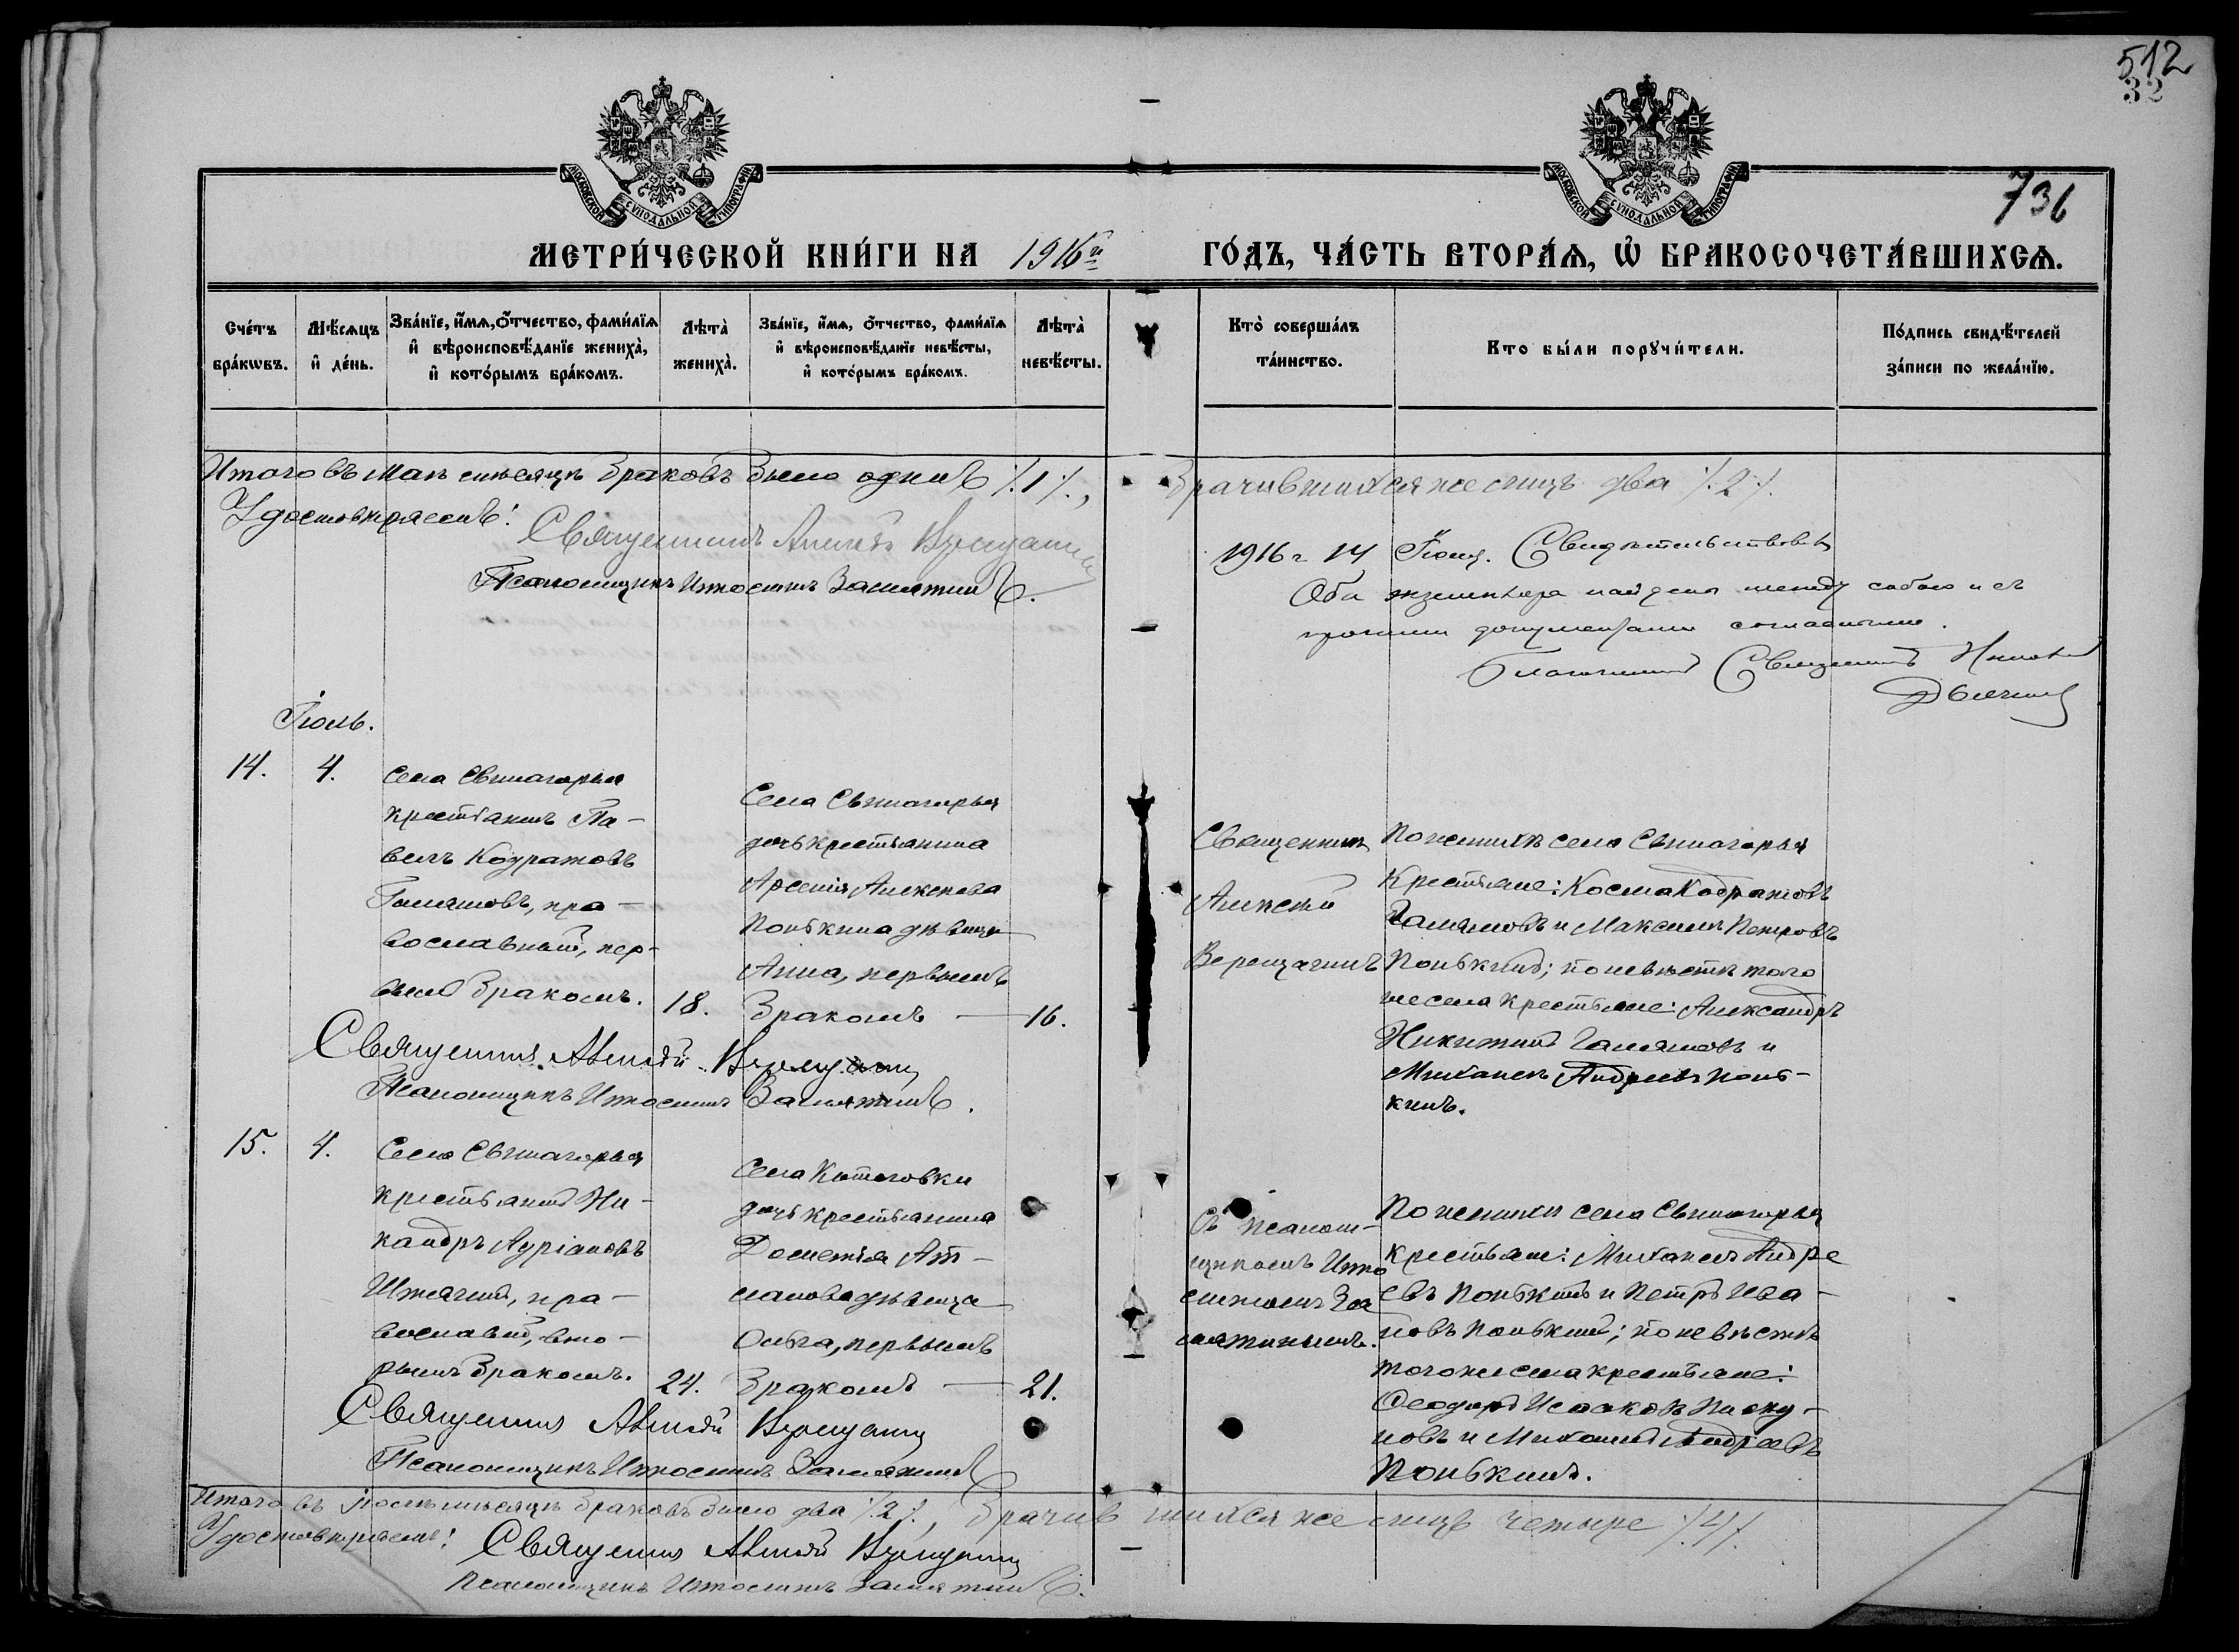 512
32
736
МОСКОВСКОЙ СѴНОДАЛЬНОЙ ТИПОГРАФІИ
МОСКОВСКОЙ СѴНОДАЛЬНОЙ ТИПОГРАФІИ
МЕТРИ́ЧЕСКОЙ КНИ́ГИ НА 1916й ГО́ДЪ, ЧА́СТЬ ВТОРА́Ѧ, Ѡ҆ БРАКОСОЧЕТА́ВШИХСѦ.
Сче́тъ бра́кѡвъ.
Мѣ́сѧцъ и҆ де́нь.
Зва́нїе, и҆́мѧ, ѻ҆́тчество, фами́лїѧ
и҆ вѣроисповѣ́данїе жениха̀,
и҆ кото́рымъ бра́комъ.
Лѣта̀ жениха̀.
Зва́нїе, и҆́мѧ, ѻ҆́тчество, фами́лїѧ
и҆ вѣроисповѣ́данїе невѣ́сты,
и҆ кото́рымъ бра́комъ.
Лѣта̀ невѣ́сты.
Кто̀ соверша́лъ та́инство.
Кто бы́ли порꙋчи́тели.
По́дпись свидѣ́телей за́писи по жела́нїю.
Итого въ маѣ мѣсяцѣ браковъ было одинъ /.1./, брачившихся же лицъ два /.2./.
Удостовѣряемъ:
Священникъ Алексѣй Верещагинъ
Псаломщикъ Замятинъ.
1916 г. 14 Свидѣтельствовалъ
Оба экземпляра найдены между собою и съ
прочими документами согласными.
Благочинный Священникъ
Іюль.
14. 4.
Села Свиногорья
крестьянинъ Па-
велъ Кодратовъ
пра-
вославный, пер-
вымъ бракомъ. 18.
Села Свиногорья
дочь крестьянина
Арсенія Алексѣева
Понькина дѣвица
Анна, первымъ
бракомъ — 16.
Священникъ
Алексѣй
Верещагинъ
По женихѣ села Свиногорья
крестьяне: Косма Кодратовъ
и Максимъ Петровъ
Понькинъ; по невѣстѣ того
же села крестьяне: Александръ
Никитинъ и
Михаилъ Андреевъ Понь-
кинъ.
Священникъ Алексѣй Верещагинъ
Псаломщикъ Замятинъ.
15. 4.
Села Свиногорья
крестьянинъ Ни-
кандръ
пра-
вославный, вто-
рымъ бракомъ. 24.
Села Котловки
дочь крестьянина
Дометія Ат-
ламова дѣвица
Ольга, первымъ
бракомъ — 21.
Съ псалом-
щикомъ
За
мятинымъ.
По женихѣ села Свиногорья
крестьяне: Михаилъ Андре
евъ Понькинъ и Петръ Ива-
новъ Понькинъ; по невѣстѣ
того же села крестьяне:
Ѳеодоръ Исааковъ
и Михаилъ Андреевъ
Понькинъ.
Священникъ Алексѣй Верещагинъ
Псаломщикъ Замятинъ
Итого въ Іюлѣ мѣсяцѣ браковъ было два /.2./, брачившихся же лицъ четыре /.4./.
Удостовѣряемъ:
Священникъ Алексѣй Верещагинъ
Псаломщикъ Замятинъ.